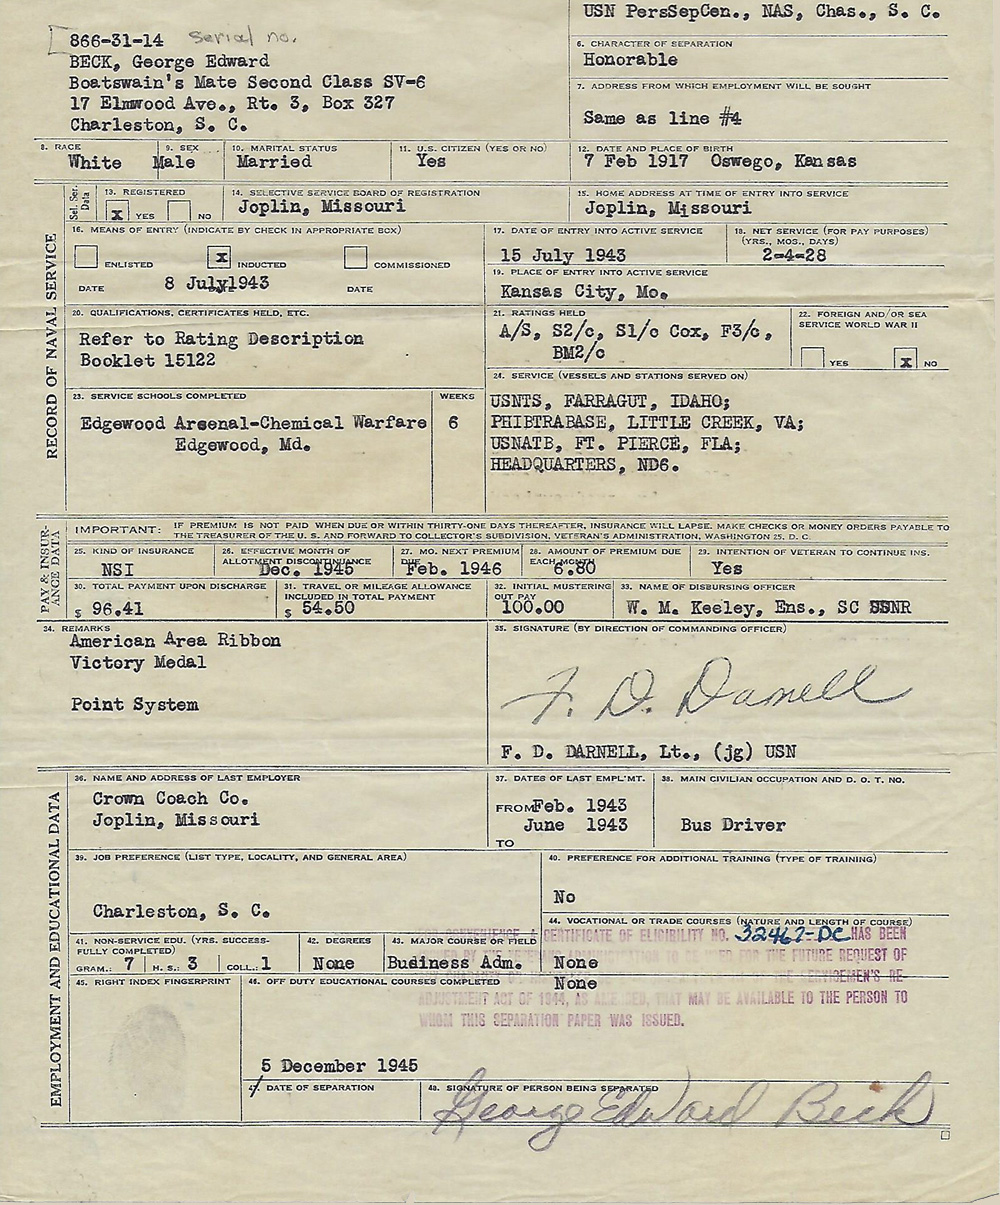 USN PersSepCen., NAS, Chas., S. C.
866-31-14 Serial no.
BECK, George Edward
Boatswain's Mate Second Class SV-6
17 Elmwood Ave., Rt. 3, Box 327
Charleston, S. C.
6. CHARACTER OF SEPARATION
Honorable
7. ADDRESS FROM WHICH EMPLOYMENT WILL BE SOUGHT
Same as line #4
8. RACE 9. SEX 10. MARITAL STATUS 11. U.S. CITIZEN (YES OR NO) 12. DATE AND PLACE OF BIRTH
White Male Married Yes 7 Feb 1917 Oswego, Kansas
Sel. Ser. Data
13. REGISTERED 14. SELECTIVE SERVICE BOARD OF REGISTRATION 15. HOME ADDRESS AT TIME OF ENTRY INTO SERVICE
X YES NO Joplin, Missouri Joplin, Missouri
RECORD OF NAVAL SERVICE
16. MEANS OF ENTRY (INDICATE BY CHECK IN APPROPRIATE BOX)
ENLISTED X INDUCTED COMMISSIONED
DATE 8 July 1943 DATE
17. DATE OF ENTRY INTO ACTIVE SERVICE
15 July 1943
18. NET SERVICE (FOR PAY PURPOSES)
(YRS., MOS., DAYS)
2-4-28
19. PLACE OF ENTRY INTO ACTIVE SERVICE
Kansas City, Mo.
20. QUALIFICATIONS, CERTIFICATES HELD, ETC.
Refer to Rating Description
Booklet 15122
21. RATINGS HELD
A/S, S2/c, S1/c Cox, F3/c,
BM2/c
22. FOREIGN AND/OR SEA
SERVICE WORLD WAR II
YES X NO
23. SERVICE SCHOOLS COMPLETED WEEKS
Edgewood Arsenal-Chemical Warfare 6
Edgewood, Md.
24. SERVICE (VESSELS AND STATIONS SERVED ON)
USNTS, FARRAGUT, IDAHO;
PHIBTRABASE, LITTLE CREEK, VA;
USNATB, FT. PIERCE, FLA;
HEADQUARTERS, ND6.
PAY & INSURANCE DATA
IMPORTANT: IF PREMIUM IS NOT PAID WHEN DUE OR WITHIN THIRTY-ONE DAYS THEREAFTER, INSURANCE WILL LAPSE. MAKE CHECKS OR MONEY ORDERS PAYABLE TO
THE TREASURER OF THE U. S. AND FORWARD TO COLLECTOR'S SUBDIVISION, VETERAN'S ADMINISTRATION, WASHINGTON 25, D. C.
25. KIND OF INSURANCE
NSI
26. EFFECTIVE MONTH OF
ALLOTMENT DISCONTINUANCE
Dec. 1945
27. MO. NEXT PREMIUM
DUE
Feb. 1946
28. AMOUNT OF PREMIUM DUE
EACH MONTH
6.80
29. INTENTION OF VETERAN TO CONTINUE INS.
Yes
30. TOTAL PAYMENT UPON DISCHARGE
$ 96.41
31. TRAVEL OR MILEAGE ALLOWANCE
INCLUDED IN TOTAL PAYMENT
$ 54.50
32. INITIAL MUSTERING
OUT PAY
100.00
33. NAME OF DISBURSING OFFICER
W. M. Keeley, Ens., SC USNR
34. REMARKS
American Area Ribbon
Victory Medal
Point System
35. SIGNATURE (BY DIRECTION OF COMMANDING OFFICER)
F. D. Darnell
F. D. DARNELL, Lt., (jg) USN
EMPLOYMENT AND EDUCATIONAL DATA
36. NAME AND ADDRESS OF LAST EMPLOYER
Crown Coach Co.
Joplin, Missouri
37. DATES OF LAST EMPL'MT.
FROM Feb. 1943
June 1943
TO
38. MAIN CIVILIAN OCCUPATION AND D. O. T. NO.
Bus Driver
39. JOB PREFERENCE (LIST TYPE, LOCALITY, AND GENERAL AREA)
Charleston, S. C.
40. PREFERENCE FOR ADDITIONAL TRAINING (TYPE OF TRAINING)
No
41. NON-SERVICE EDU. (YRS. SUCCESS-
FULLY COMPLETED)
GRAM.: 7 H. S.: 3 COLL.: 1
42. DEGREES
None
43. MAJOR COURSE OR FIELD
Business Adm.
44. VOCATIONAL OR TRADE COURSES (NATURE AND LENGTH OF COURSE)
None
None
CERTIFICATE OF ELIGIBILITY NO. 32467-DC HAS BEEN
FOR THE FUTURE REQUEST OF
SERVICEMEN'S RE-
ADJUSTMENT ACT OF 1944, AS AMENDED, THAT MAY BE AVAILABLE TO THE PERSON TO
WHOM THIS SEPARATION PAPER WAS ISSUED.
45. RIGHT INDEX FINGERPRINT
46. OFF DUTY EDUCATIONAL COURSES COMPLETED
5 December 1945
47. DATE OF SEPARATION
48. SIGNATURE OF PERSON BEING SEPARATED
George Edward Beck